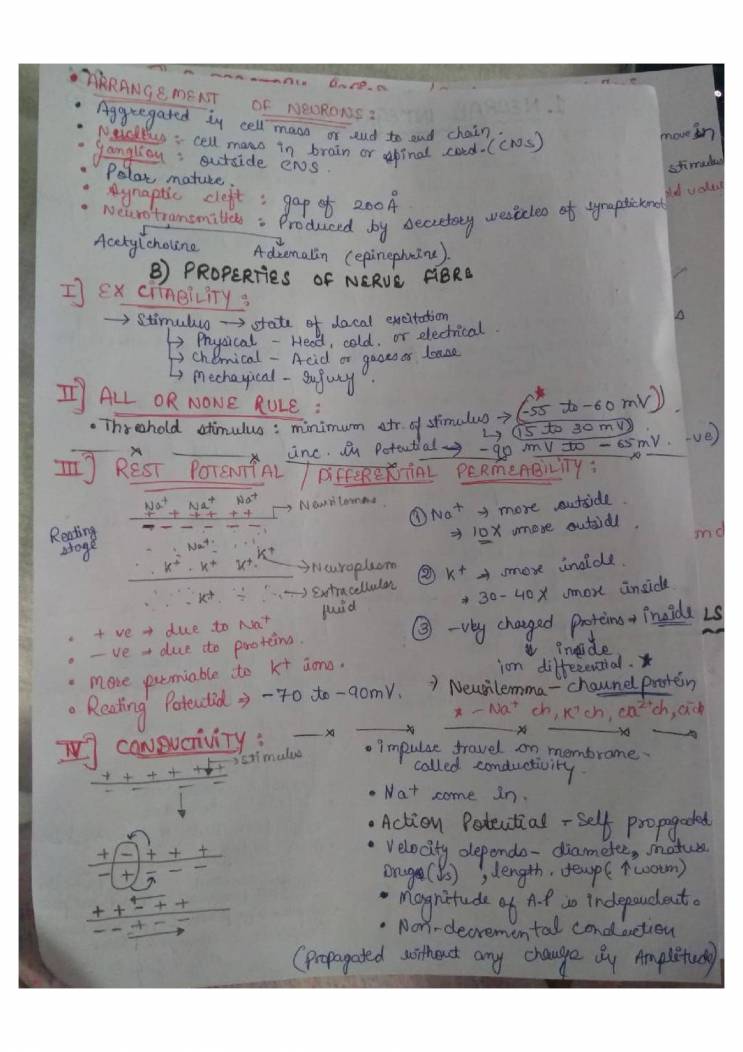 • ARRANGEMENT OF NEURONS :
• Aggregated in cell mass or end to end chain.
• Nucleus :- cell mass in brain or spinal cord. (CNS)
• Ganglion : outside CNS.
• Polar nature.
• Synaptic cleft : gap of 200 Å
• Neurotransmitters : Produced by secretory vesicles of synaptic knob
Acetylcholine Adrenalin (epinephrine).
move in
stimulus
B) PROPERTIES OF NERVE FIBRE
I] EXCITABILITY :
→ Stimulus → state of local excitation
↳ Physical - Heat, cold, or electrical.
↳ Chemical - Acid or gases or base
↳ Mechanical - Injury.
II] ALL OR NONE RULE :
• Threshold stimulus : minimum str. of stimulus → (-55 to -60 mV)
↳ (15 to 30 mV)
inc. in Potential → -90 mV to -65 mV.
-ve)
III] REST POTENTIAL / DIFFERENTIAL PERMEABILITY :
Na+ Na+ Na+
+ + + + + + + → Neurilemma
- - - - - - -
Resting stage
Na+
K+ K+ K+ K+
→ Neuroplasm
K+ → Extracellular fluid
① Na+ → more outside.
⇒ 10X more outside.
② K+ → more inside.
* 30-40X more inside.
③ -vly charged proteins → inside LS
↓ inside
ion differential. *
→ Neurilemma - channel protein
* - Na+ ch, K+ ch, Ca2+ ch,
• + ve → due to Na+
• - ve → due to proteins.
• More permiable to K+ ions.
• Resting Potential ⇒ -70 to -90mV.
IV] CONDUCTIVITY :
→ stimulus
+ + + + + +
- - - - - -
+ - + + +
- + - - -
+ + - + +
- - + - -
• impulse travel on membrane - called conductivity.
• Na+ come in.
• Action Potential - Self propagated
• Velocity depends - diameter, nature
Drugs (↓s), length, temp (↑ warm)
• Magnitude of A.P is independent.
• Non-decremental conduction
(Propagated without any change in Amplitude)